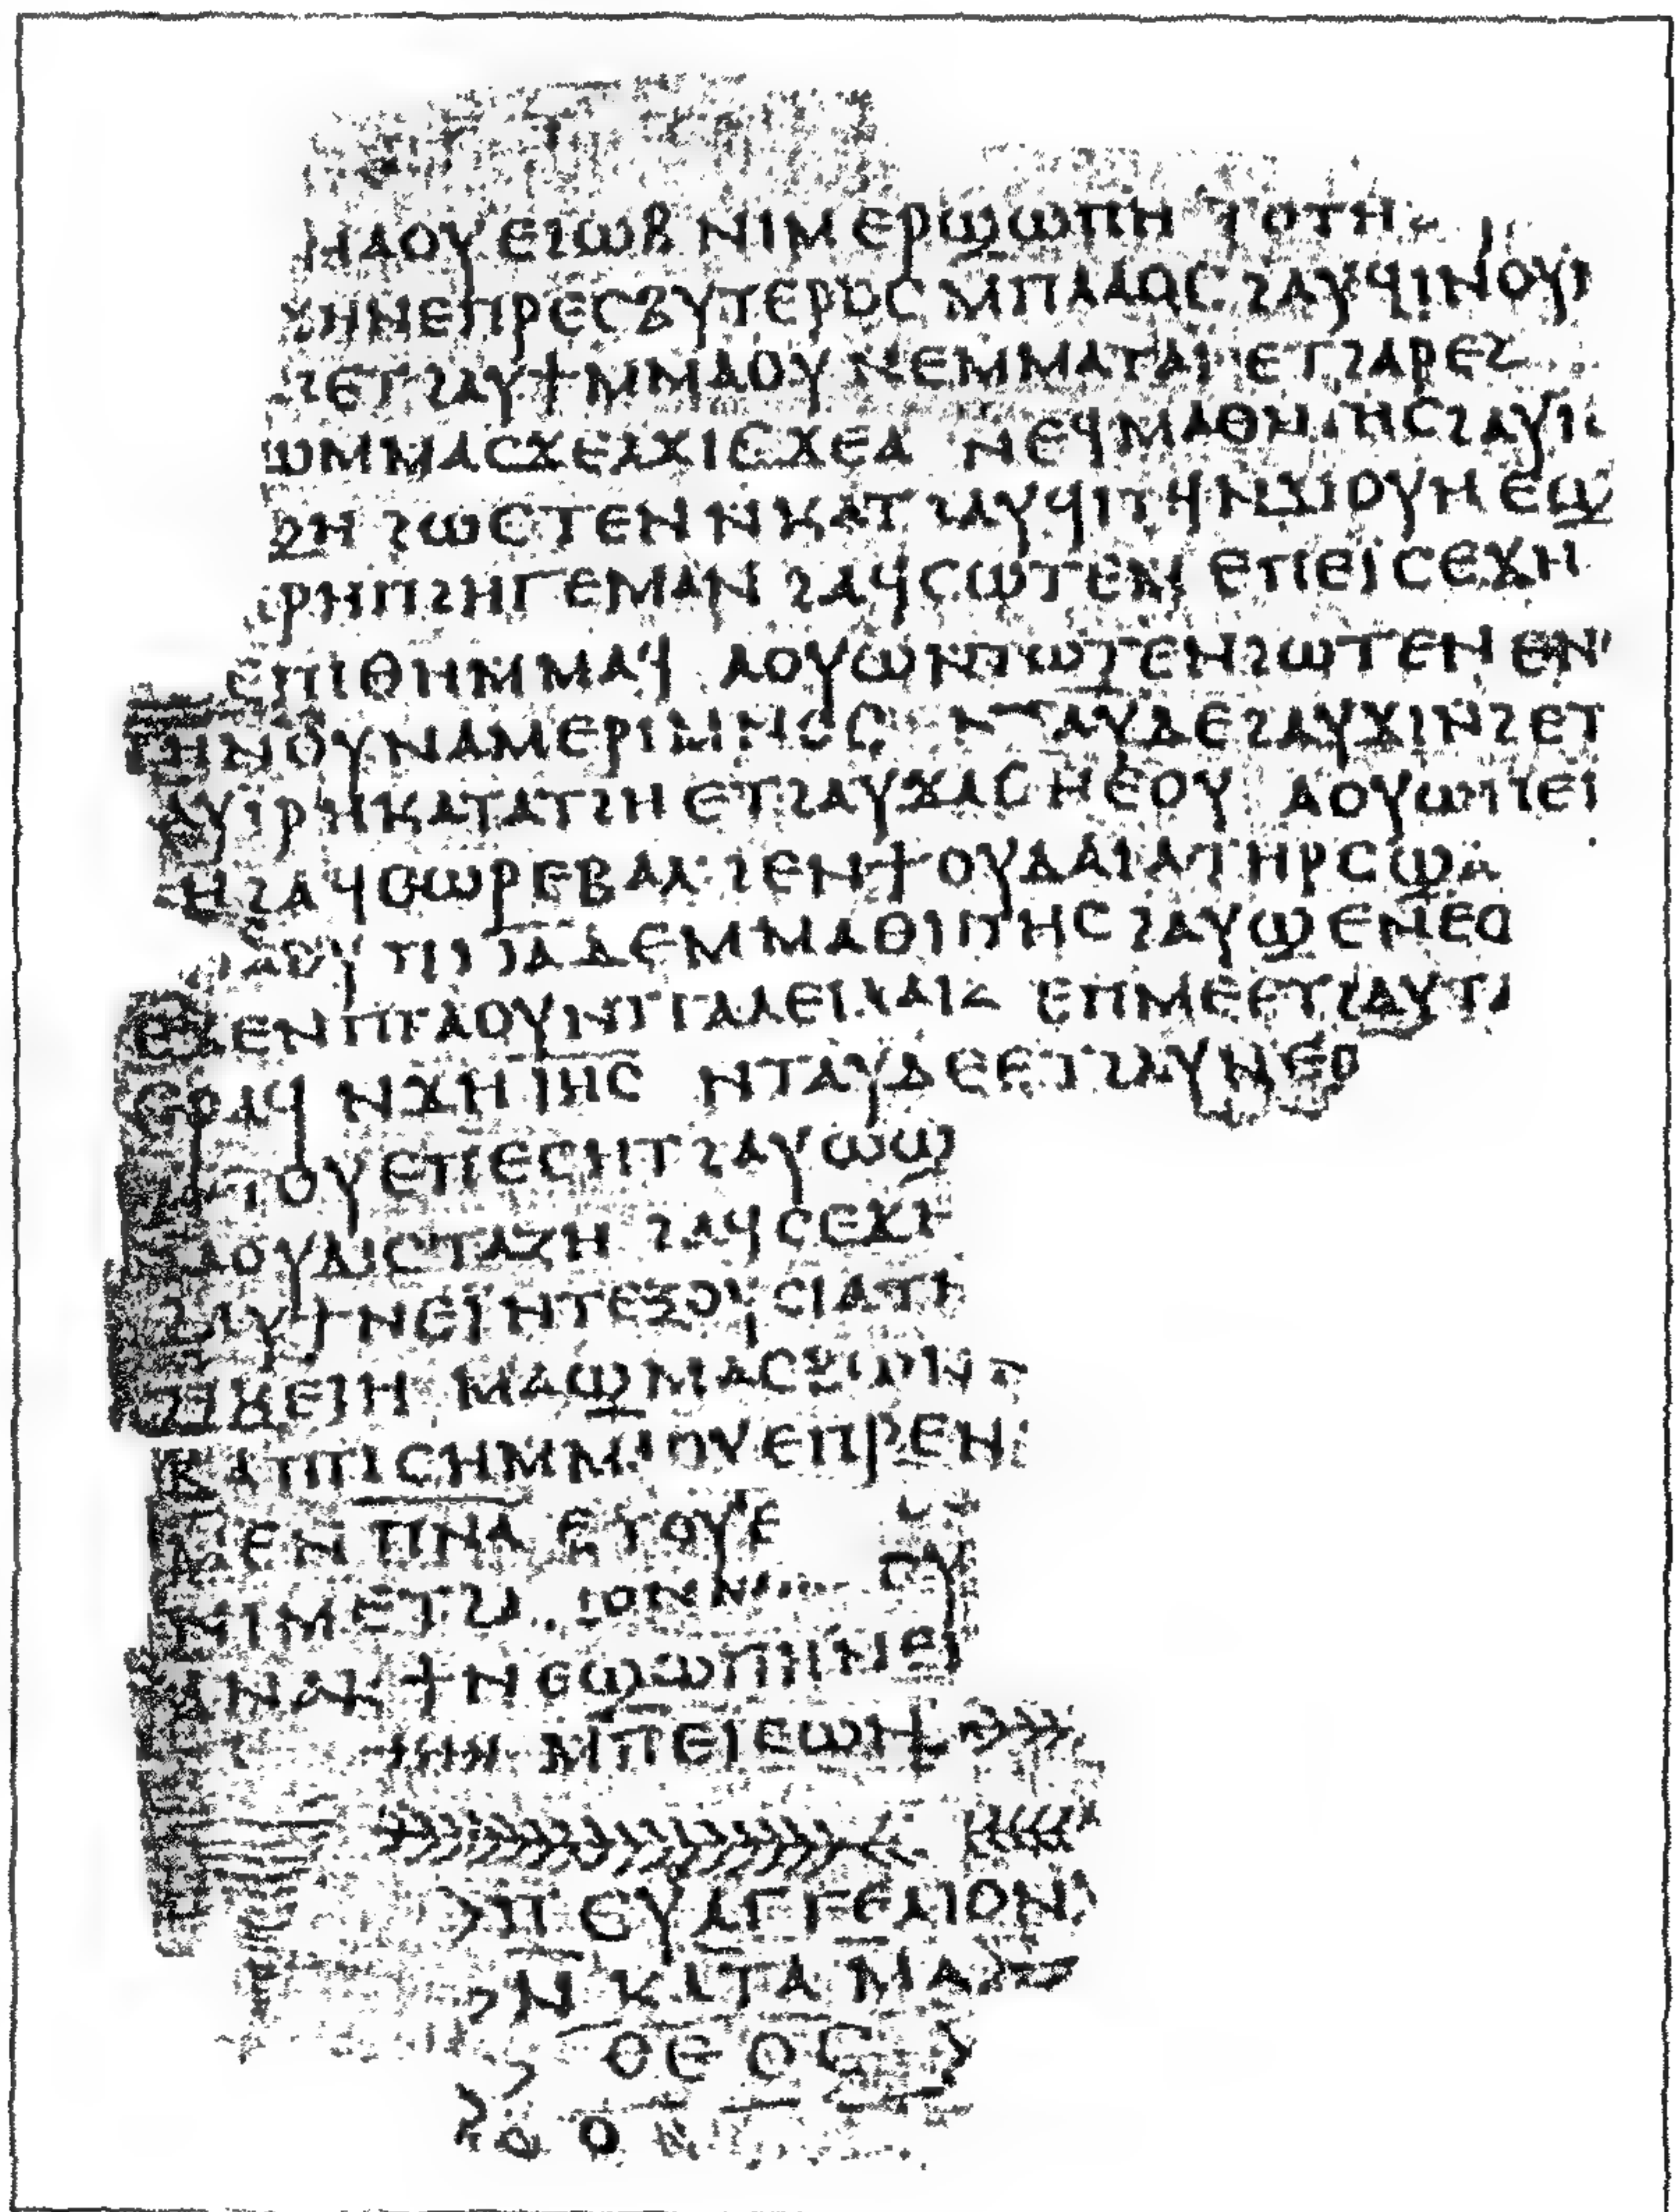 ⲏⲁⲟⲩ ⲉϩⲱⲃ ⲛⲓⲙ ⲉⲣϣⲱⲡⲏ ⲧⲟⲧⲏ
ϫⲏⲛⲉⲡⲣⲉⲥⲃⲩⲧⲉⲣⲟⲥ ⲙⲡⲗⲁⲟⲥ ϩⲁⲩϥⲓⲛⲟⲩ
ϩⲉⲧ ϩⲁⲩϯⲙⲙⲁⲟⲩ ⲛⲉⲙⲙⲁⲧⲁⲓ ⲉⲧϩⲁⲣⲉϩ
ⲱⲙⲙⲁⲥϫⲉⲁϫⲓⲥϫⲉⲁ ⲛⲉϥⲙⲁⲑⲏⲧⲏⲥϩⲁⲩⲓ
ϩⲏ ϩⲱⲥⲧⲉⲛⲛⲕⲁⲧ ϩⲁⲩϥⲓⲧϥⲛϫⲓⲟⲩⲏ ⲉϣ
ⲣⲏⲡϩⲏⲅⲉⲙⲁⲛ ϩⲁϥⲥⲱⲧⲉⲙ ⲉⲡⲉⲓⲥⲉϫⲏ
ⲉⲡⲓⲑⲏⲙⲙⲁϥ ⲁⲟⲩⲱ ⲛⲧⲱⲧⲉⲛϩⲱⲧⲉⲛ ⲉⲛ
ⲧⲏⲛⲟⲩⲛⲁⲙⲉⲣⲓⲙⲛⲟⲥ ⲛⲧⲁⲩⲇⲉϩⲁⲩϫⲓⲛϩⲉⲧ
ⲁⲩⲓⲣⲏⲕⲁⲧⲁⲧϩⲏ ⲉⲧϩⲁⲩϫⲁⲥ ⲛⲉⲟⲩ ⲁⲟⲩⲱⲡⲉⲓ
ⲏ ϩⲁϥⲥⲱⲣ ⲉⲃⲁⲗ ϩⲉⲛϯⲟⲩⲇⲁⲓⲁ ⲧⲏⲣⲥ ϣⲁ
ⲁⲟⲩ ⲡⲓⲓⲁ ⲇⲉⲙⲙⲁⲑⲓⲧⲏⲥ ϩⲁⲩϣⲉⲛⲉⲟ
ⲉϫⲉⲛ ⲡⲧⲁⲟⲩ ⲛⲧⲅⲁⲗⲉⲓⲗⲁⲓⲁ ⲉⲡⲙⲉ ⲉⲧϩⲁⲩⲧ
ⲉⲣⲁϥ ⲛϫⲏ ⲓⲏⲥ ⲛⲧⲁⲩⲇⲉ ⲉⲧϩⲁⲩⲛⲉⲟ
ⲧⲟⲩ ⲉⲡⲉⲥⲏⲧ ϩⲁⲩⲱϣ
ⲁⲟⲩⲇⲓⲥⲧⲁⲍⲏ ϩⲁϥⲥⲉϫⲏ
ϩⲁⲩϯ ⲛⲉⲓ ⲛⲧⲉⲝⲟⲩⲥⲓⲁ ⲧⲏ
ϩⲓϫⲉⲓⲏ ⲙⲁϣ ⲙⲁⲥⲃⲱⲛ
ⲕⲁⲡⲧⲓⲥⲏ ⲙⲙⲁⲟⲩ ⲉⲡⲣⲉⲛ
ⲙⲉⲛ ⲡⲛⲁ ⲉⲧⲟⲩⲉ
ⲛⲓⲙ ⲉⲧϩⲁ ϩⲟⲛ ⲟⲩ
ⲁⲛⲁⲕ ϯⲛⲉϣⲱⲡⲏ ⲛⲉ
ⲙⲡⲉⲓⲉⲱⲛ
ⲡⲉⲩⲁⲅⲅⲉⲗⲓⲟⲛ
ⲛⲕⲁⲧⲁ ⲙⲁ
ⲑⲉⲟⲥ